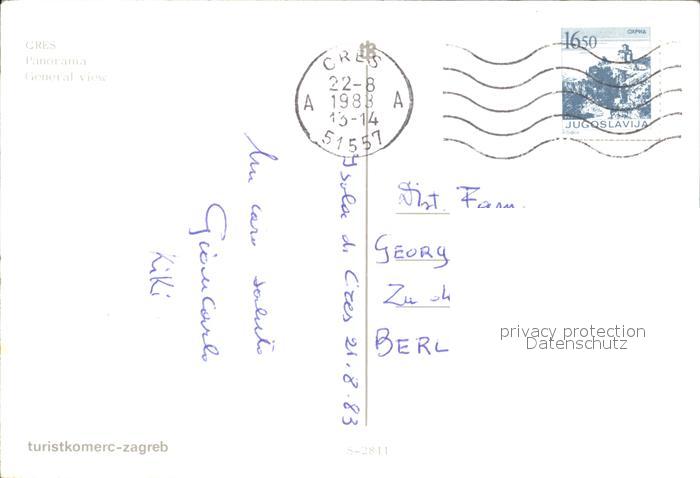 CRES
Panorama
General view
CRES
22-8
1983
13-14
A A
51557
ОХРИД
1650
JUGOSLAVIJA
Isola di Cres 21.8.83
Un caro saluto
Giancarlo
Kiki
Dist. Fam.
GEORG
BERL
privacy protection
Datenschutz
turistkomerc-zagreb
S-2811